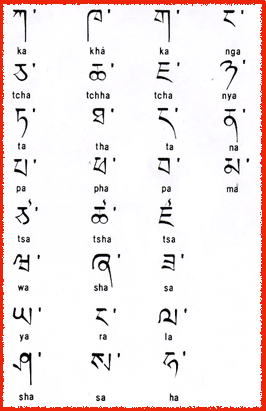 ཀ་ ཁ་ ག་ ང་
ka khá ka nga
ཅ་ ཆ་ ཇ་ ཉ་
tcha tchha tcha nya
ཏ་ ཐ་ ད་ ན་
ta tha ta na
པ་ ཕ་ བ་ མ་
pa pha pa ma
ཙ་ ཚ་ ཛ་
tsa tsha tsa
ཝ་ ཞ་ ཟ་
wa sha sa
ཡ་ ར་ ལ་
ya ra la
ཤ་ ས་ ཧ་
sha sa ha